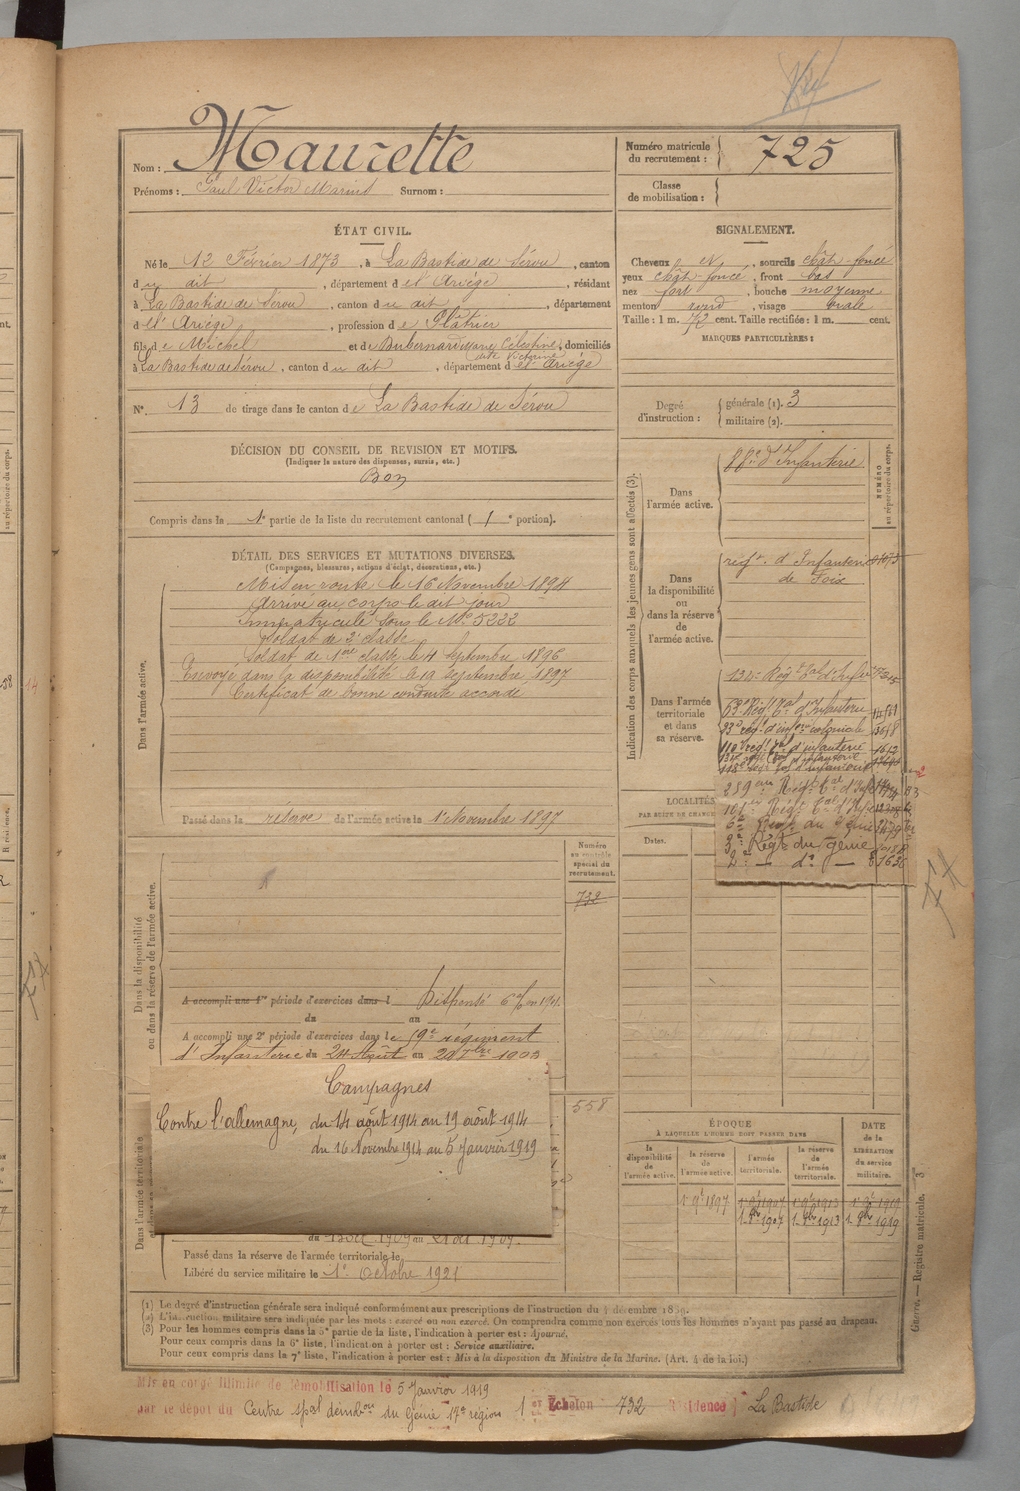 Nom : Maurette
Prénoms : Paul Victor Marius Surnom :
Numéro matricule du recrutement : 725
Classe de mobilisation :
ÉTAT CIVIL.
Né le 12 Février 1873, à La Bastide de Sérou, canton
du dit, département de l'Ariége, résidant
à La Bastide de Sérou, canton du dit, département
de l'Ariége, profession de Plâtrier
fils de Michel et de Dubernard Marie Célestine, domiciliés
dite Victorine
à La Bastide de Sérou, canton du dit, département de l'Ariége
N°. 13 de tirage dans le canton de La Bastide de Sérou
SIGNALEMENT.
Cheveux N, sourcils chât-foncé
yeux chât-foncé, front bas
nez fort, bouche moyenne
menton rond, visage ovale
Taille : 1 m. 72 cent. Taille rectifiée : 1 m. cent.
MARQUES PARTICULIÈRES :
Degré d'instruction : générale (1). 3
militaire (2).
DÉCISION DU CONSEIL DE REVISION ET MOTIFS.
(Indiquer la nature des dispenses, sursis, etc.)
Bon
Compris dans la 1e partie de la liste du recrutement cantonal ( 1 e portion).
DÉTAIL DES SERVICES ET MUTATIONS DIVERSES.
(Campagnes, blessures, actions d'éclat, décorations, etc.)
Dans l'armée active.
Mis en route le 16 Novembre 1894
Arrivé au corps le dit jour
Immatriculé sous le No 5232
Soldat de 2e classe
Soldat de 1ere classe le 4 Septembre 1896
Envoyé dans la disponibilité le 19 Septembre 1897
Certificat de bonne conduite accordé
Passé dans la réserve de l'armée active le 1er Novembre 1897
Indication des corps auxquels les jeunes gens sont affectés (3).
NUMÉRO au répertoire du corps.
Dans l'armée active.
88e d'Infanterie
Dans la disponibilité ou dans la réserve de l'armée active.
régt. d'Infanterie
de Foix
Dans l'armée territoriale et dans sa réserve.
134e Régt Tal d'Infie
63e Régt Tal d'Infanterie
23e régt d'infrie coloniale
110e régt tal d'infanterie
259ème Régt Tal d'Infie
6e Régt du Génie
3e Régt du génie
2e — do —
LOCALITÉS
PAR SUITE DE CHANGE
Dates.
Numéro au contrôle spécial du recrutement.
732
Dans la disponibilité ou dans la réserve de l'armée active.
A accompli une 1re période d'exercices dans l Dispensé
du au
A accompli une 2e période d'exercices dans le 59e régiment
d'Infanterie du 24 Août au 20 7bre 1903
558
Campagnes
Contre l'allemagne, du 14 août 1914 au 19 août 1914
du 16 Novembre 1914 au 5 Janvier 1919
Dans l'armée territoriale
Passé dans la réserve de l'armée territoriale le
Libéré du service militaire le 1er Octobre 1921
ÉPOQUE
À LAQUELLE L'HOMME DOIT PASSER DANS
DATE de la LIBÉRATION du service militaire.
la disponibilité de l'armée active.
la réserve de l'armée active.
l'armée territoriale.
la réserve de l'armée territoriale.
1er 9bre 1897 1er 9bre 1907 1er 9bre 1913 1er 9bre 1919
1er 8bre 1907 1er 8bre 1913 1er 8bre 1919
Guerre. — Registre matricule. 3
(1) Le degré d'instruction générale sera indiqué conformément aux prescriptions de l'instruction du 4 décembre 1889.
(2) L'instruction militaire sera indiquée par les mots : exercé ou non exercé. On comprendra comme non exercés tous les hommes n'ayant pas passé au drapeau.
(3) Pour les hommes compris dans la 5e partie de la liste, l'indication à porter est : Ajourné.
Pour ceux compris dans la 6e liste, l'indication à porter est : Service auxiliaire.
Pour ceux compris dans la 7e liste, l'indication à porter est : Mis à la disposition du Ministre de la Marine. (Art. 4 de la loi.)
Mis en congé illimité de démobilisation le 5 Janvier 1919
par le dépôt du Centre spal démbon du Génie 17e région 1er Echelon 732 Résidence La Bastide